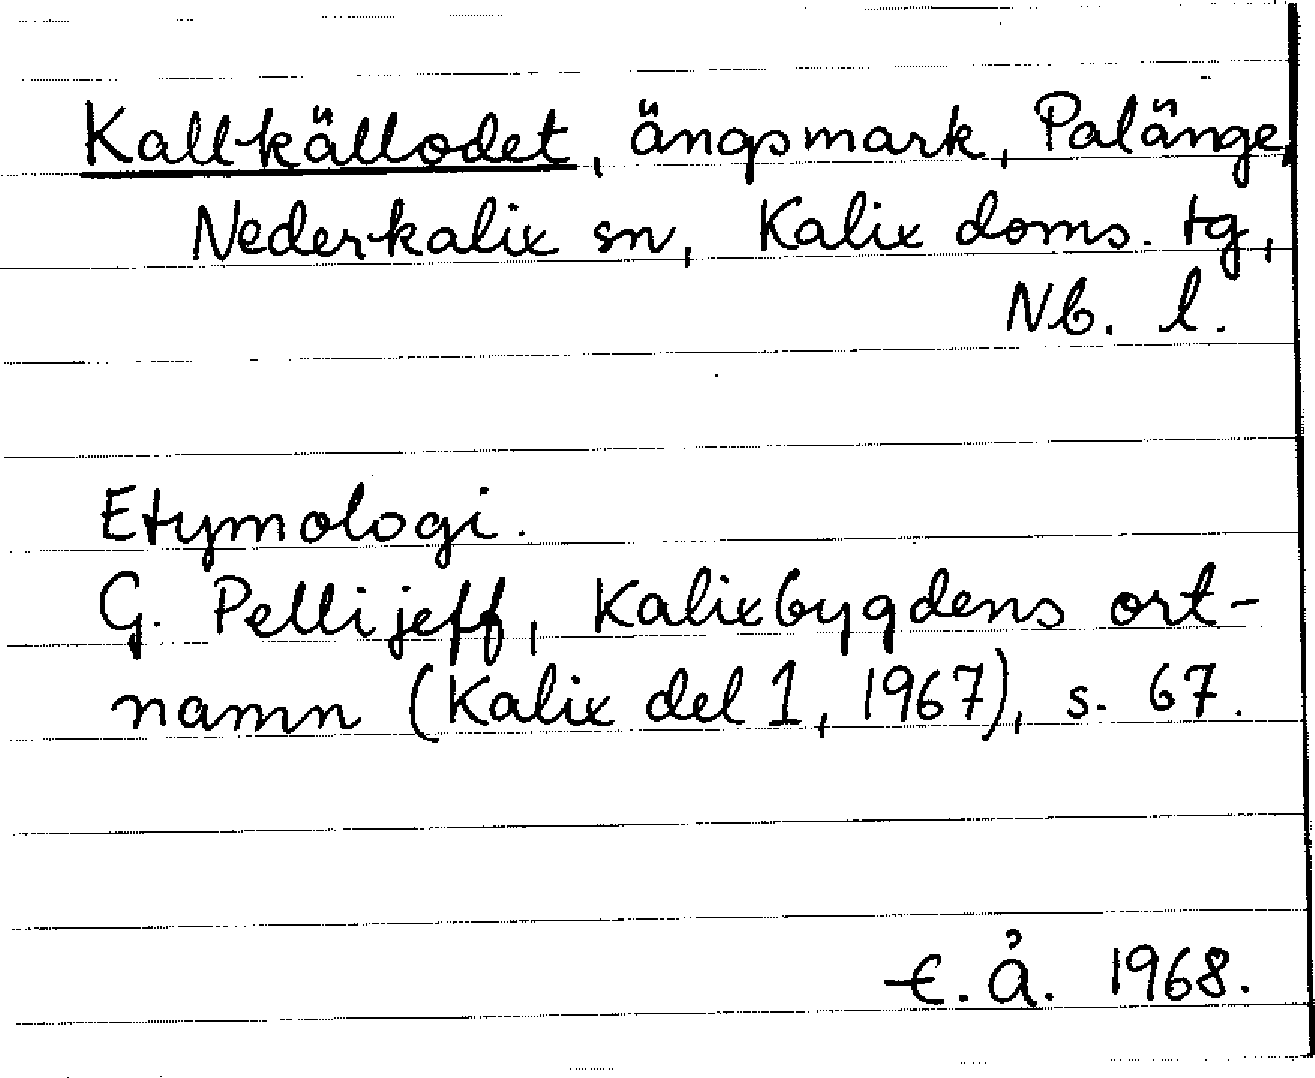 Kallkällodet, ängsmark, Palänge,
Nederkalix sn, Kalix doms. tg,
Nb. l.
Etymologi.
G. Pellijeff, Kalixbygdens ort-
namn (Kalix del 1, 1967), s. 67.
E. Å. 1968.